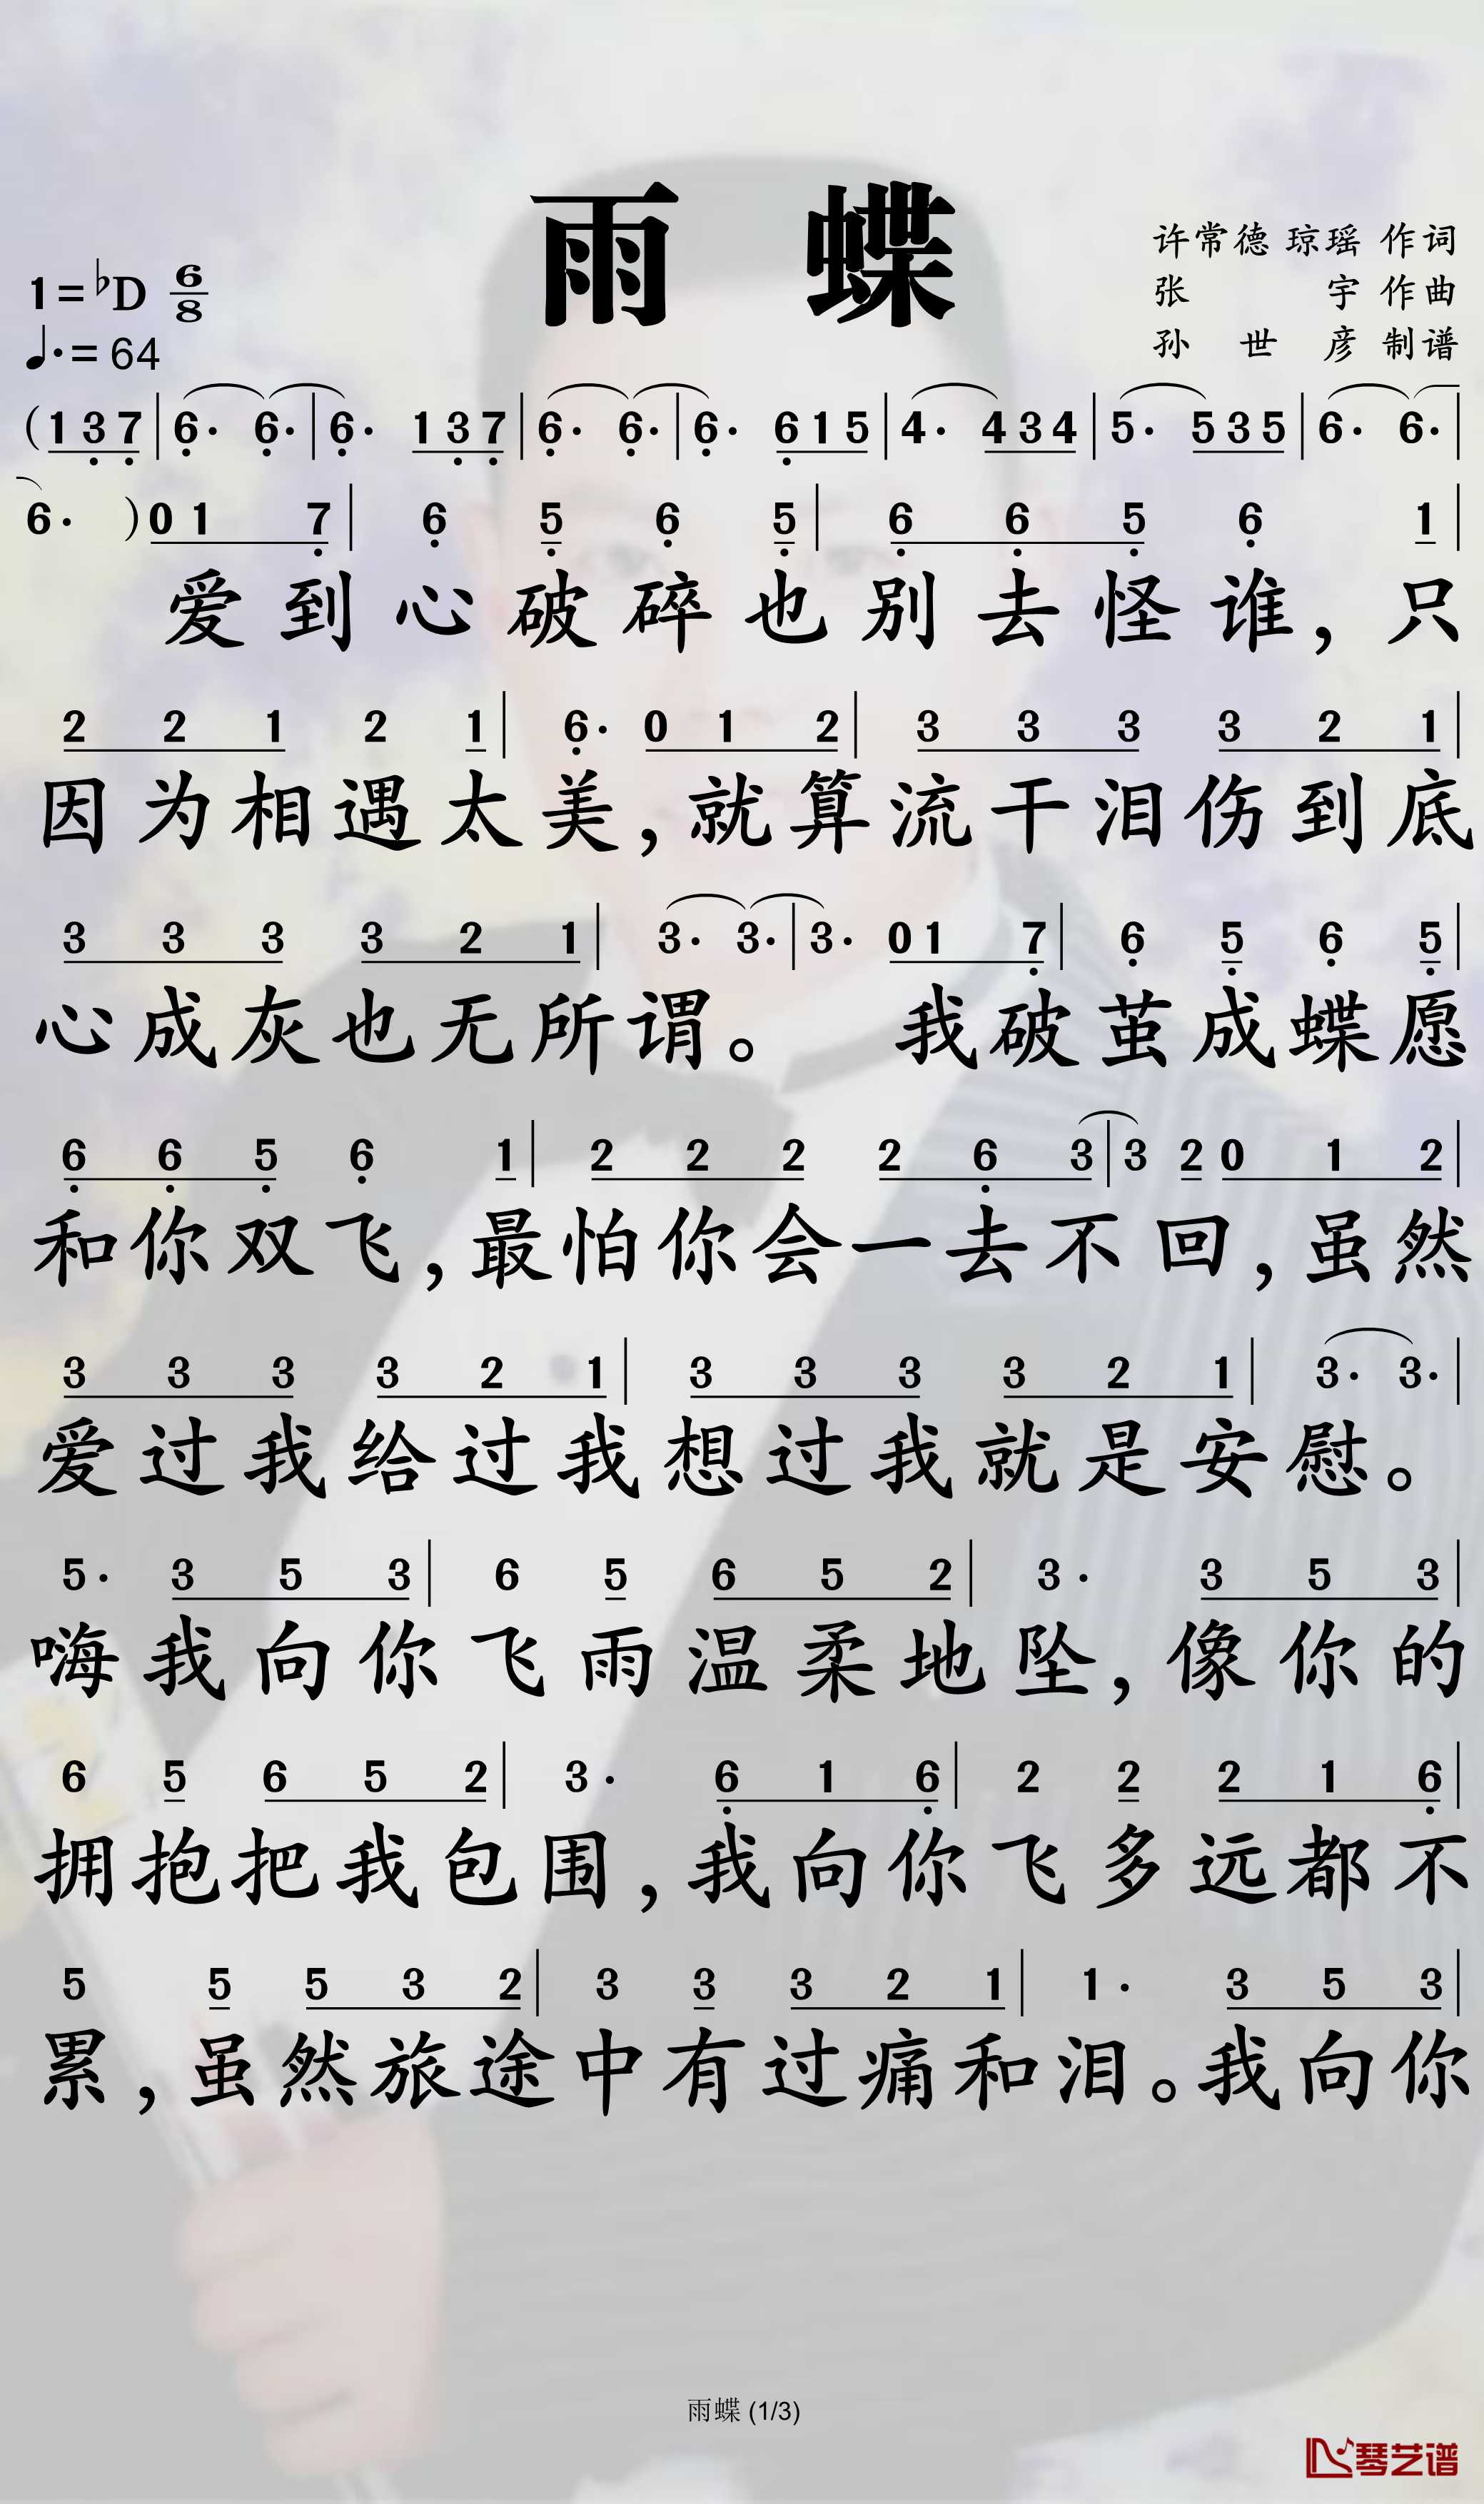 雨 蝶
许常德 琼瑶 作词
张 宇 作曲
孙 世 彦 制谱
1=♭D 6/8
♩.= 64
(1 3̣ 7̣ | 6̣· 6̣· | 6̣· 1 3̣ 7̣ | 6̣· 6̣· | 6̣· 6̣ 1 5 | 4· 4 3 4 | 5· 5 3 5 | 6· 6· |
6· ) 0 1 7̣ | 6̣ 5̣ 6̣ 5̣ | 6̣ 6̣ 5̣ 6̣ 1 |
爱到心破碎也别去怪谁，只
2 2 1 2 1 | 6̣· 0 1 2 | 3 3 3 3 2 1 |
因为相遇太美，就算流干泪伤到底
3 3 3 3 2 1 | 3· 3· | 3· 0 1 7̣ | 6̣ 5̣ 6̣ 5̣ |
心成灰也无所谓。 我破茧成蝶愿
6̣ 6̣ 5̣ 6̣ 1 | 2 2 2 2 6̣ 3 | 3 2 0 1 2 |
和你双飞，最怕你会一去不回，虽然
3 3 3 3 2 1 | 3 3 3 3 2 1 | 3· 3· |
爱过我给过我想过我就是安慰。
5· 3 5 3 | 6 5 6 5 2 | 3· 3 5 3 |
嗨我向你飞雨温柔地坠，像你的
6 5 6 5 2 | 3· 6̣ 1 6̣ | 2 2 2 1 6̣ |
拥抱把我包围，我向你飞多远都不
5 5 5 3 2 | 3 3 3 2 1 | 1· 3 5 3 |
累，虽然旅途中有过痛和泪。我向你
雨蝶 (1/3)
琴艺谱